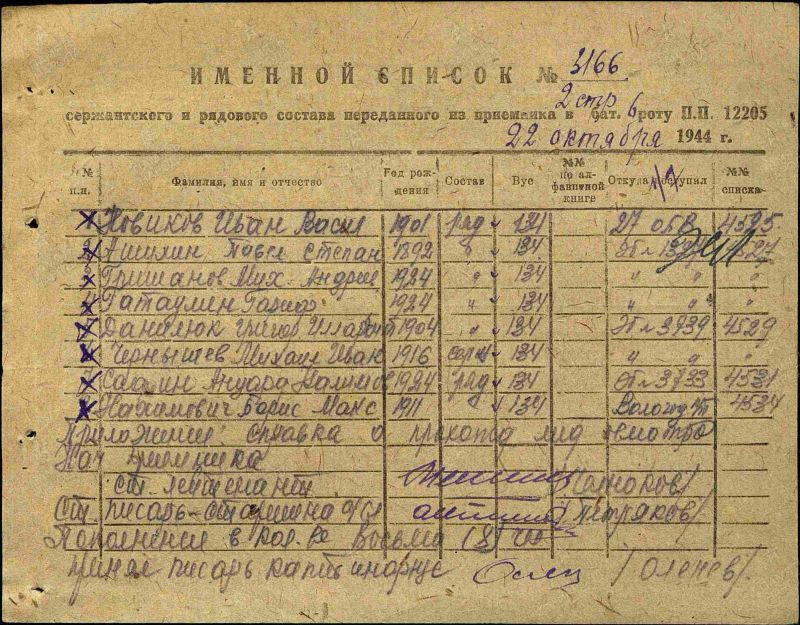 ИМЕННОЙ СПИСОК № 3166
2 стр 6
сержантского и рядового состава переданного из приемника в бат. роту П.П. 12205
22 октября 1944 г.
№ п.п. Фамилия, имя и отчество Год рождения Состав Вус №№ по алфавитной книге Откуда поступал №№ списка
1 Новиков Иван Васил 1901 ряд 134 27 ОБВ 4525
2 Павел Степан 1892 " 134 4527
3 Гришанов Мих. Андрее 1924 " 134 " " "
4 Гатаулин 1924 " 134 " " "
5 Данилюк Григор 1904 " 134 3739 4529
6 Чернышев Михаил Иван 1916 серж 134 " " "
7 1924 ряд 134 3733 4531
8 Нахимович Борис Макс 1911 134 4534
Приложение: справка о мед осмотра
Нач приемника
ст. лейтенант
Ст. писарь-старшина /Петряков/
Пополнение в кол. ве Восьми (8) чел
принял писарь /Оленев/